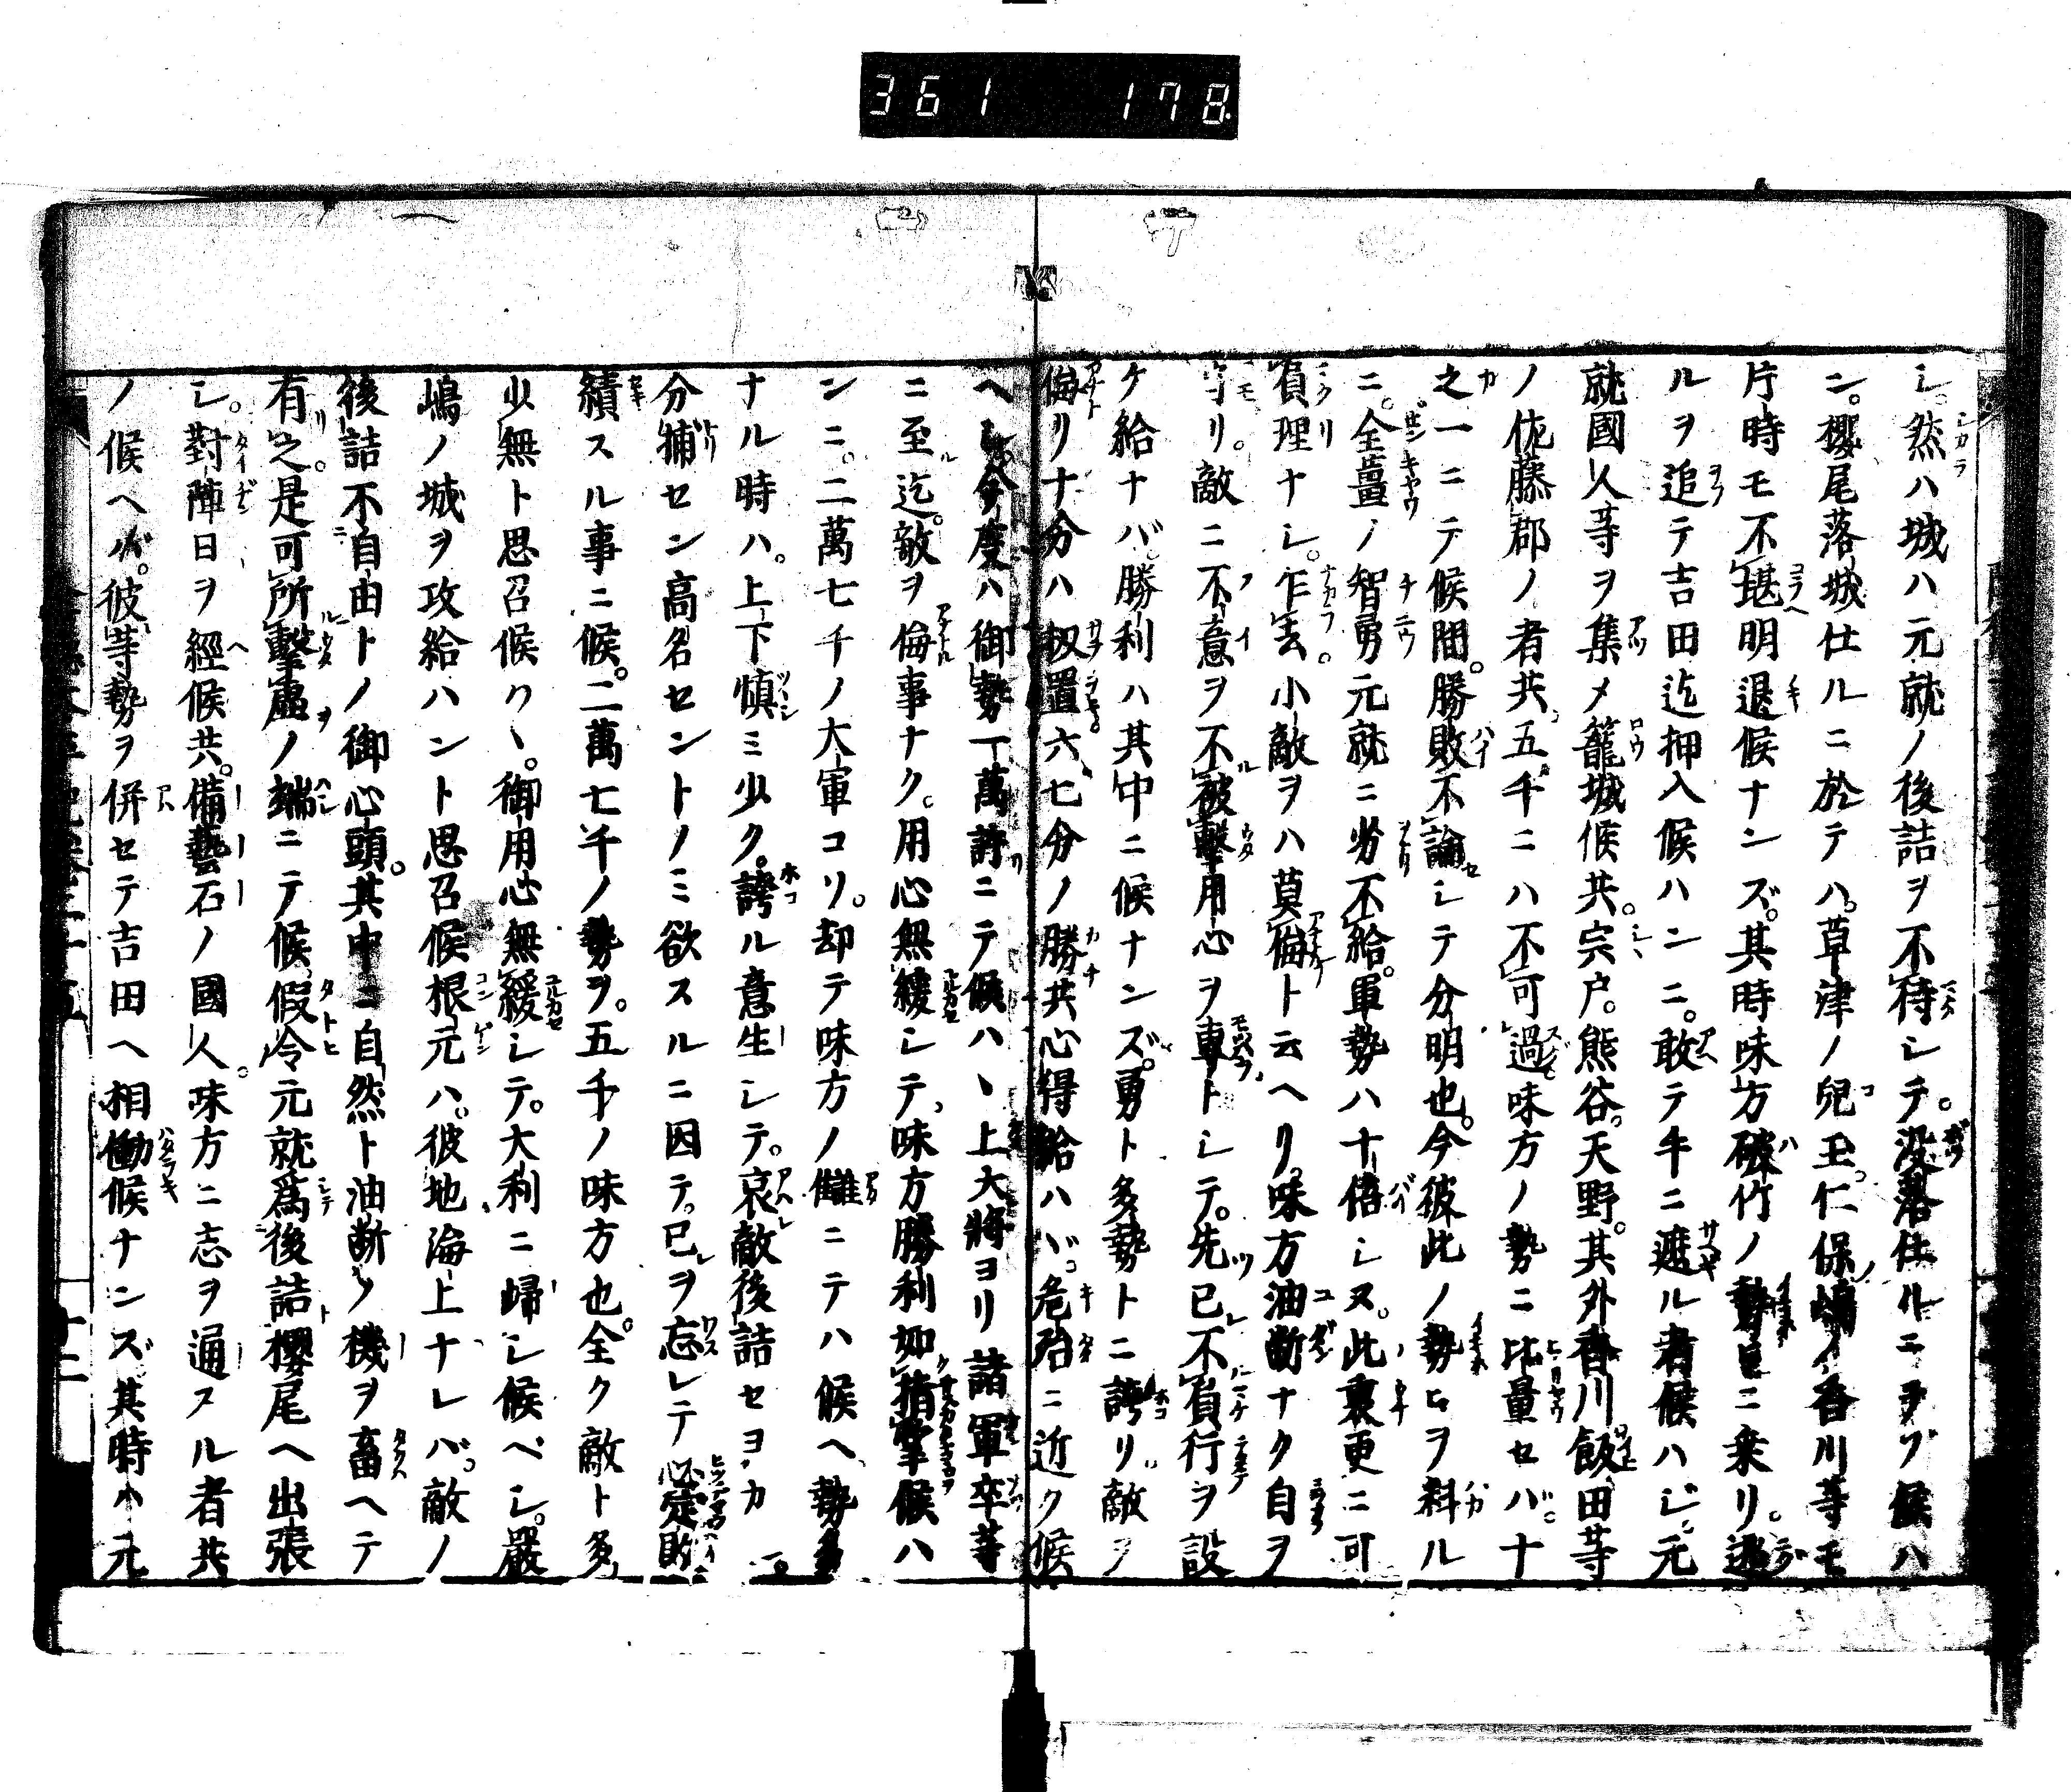 361 178
シ。然ハ城ハ元就ノ後詰ヲ不待シテ。没落仕ルニヲヲブ候ハ
ン。櫻尾落城仕ルニ於テハ。草津ノ兒玉。仁保嶋ノ香川等モ
片時モ不堪明退候ナンズ。其時味方破竹ノ勢ヒニ乗リ。逃
ルヲ追テ吉田迄押入候ハンニ。敢テ手ニ遮ル者候ハジ。元
就國人等ヲ集メ籠城候共。宍戸。熊谷。天野。其外香川飯田等
ノ佐藤郡ノ者共。五千ニハ不可過味方ノ勢ニ比量セバ。十
之一ニテ候間。勝敗不論シテ分明也。今彼此ノ勢ヒヲ料ル
ニ。全薑ノ智勇元就ニ劣不給。軍勢ハ十倍シヌ。此裏更ニ可
負理ナシ。乍去小敵ヲハ莫侮ト云ヘリ。味方油断ナク自ヲ
守リ。敵ニ不意ヲ不被撃用心ヲ專トシテ。先已不負行ヲ設
ケ給ナバ。勝利ハ其中ニ候ナンズ。勇ト多勢トニ誇リ。敵ヲ
侮リナ分ハ扨置六七分ノ勝共心得給ハヾ。危殆ニ近ク候
ヘシ。今度ハ御勢一萬許ニテ候ハヽ上大將ヨリ諸軍卒等
ニ至迄。敵ヲ侮事ナク。用心無緩シテ。味方勝利如指掌候ハ
ンニ。二萬七千ノ大軍コリ。却テ味方ノ讎ニテハ候ヘ。勢多
ナル時ハ。上下慎ミ少ク。誇ル意生シテ。哀敵後詰セヨカ
分捕セン高名セントノミ欲スルニ因テ。已ヲ忘レテ必定敗
績スル事ニ候。二萬七千ノ勢ヲ。五千ノ味方也。全ク敵ト多
少無ト思召候ク、。御用心無緩シテ。大利ニ歸シ候ベシ。嚴
嶋ノ城ヲ攻給ハント思召候根元ハ。彼地海上ナレバ。敵ノ
後詰不自由トノ御心頭。其中ニ自然ト油断ノ機ヲ畜ヘテ
有之。是可所撃虚ノ端ニテ候。假令元就爲後詰櫻尾ヘ出張
シ。對陣日ヲ經候共。備藝石ノ國人。味方ニ志ヲ通スル者共
ノ候ヘバ。彼等勢ヲ併セテ吉田ヘ相働候ナンズ其時ハ元